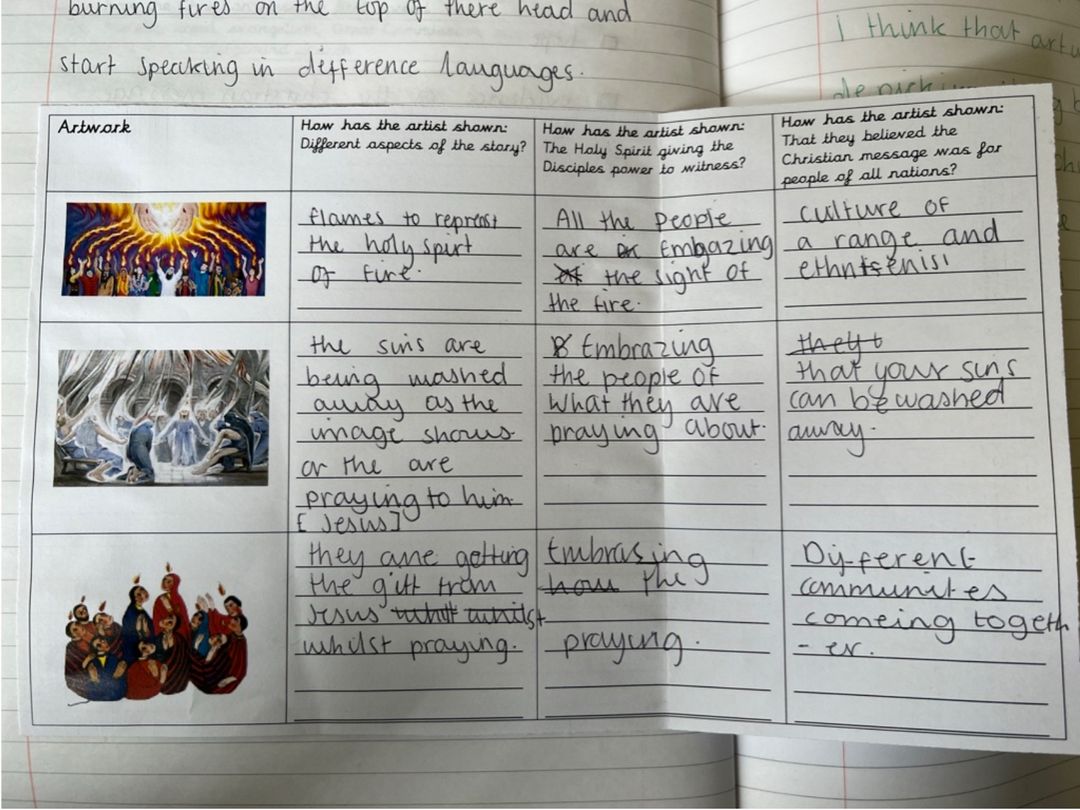 burning fires on the top of there head and
start speaking in difference languages.
i think that artw
depicki
Artwork
How has the artist shown:
Different aspects of the story?
How has the artist shown:
The Holy Spirit giving the
Disciples power to witness?
How has the artist shown:
That they believed the
Christian message was for
people of all nations?
flames to represt
the holy spirt
of fire.
All the people
are Embazing
the sight of
the fire.
culture of
a range and
the sins are
being washed
away as the
image shows
or the are
praying to him
[Jesus]
Embrazing
the people of
what they are
praying about.
that your sins
can be washed
away.
they are getting
the gift from
Jesus
whilst praying.
Embrasing
how the
praying.
Different
communites
comeing togeth
- er.